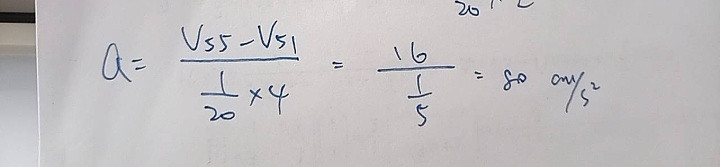 a = (V55 - V51) / (1/20 × 4) = 16 / (1/5) = 80 cm/s²